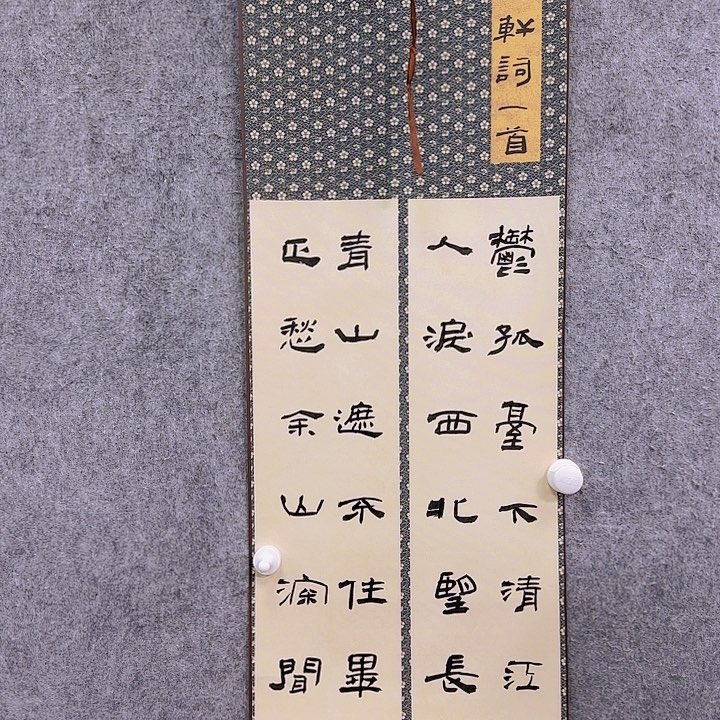 軒詞一首
鬱孤臺下清江
人淚西北望長
青山遮不住畢
正愁余山深聞